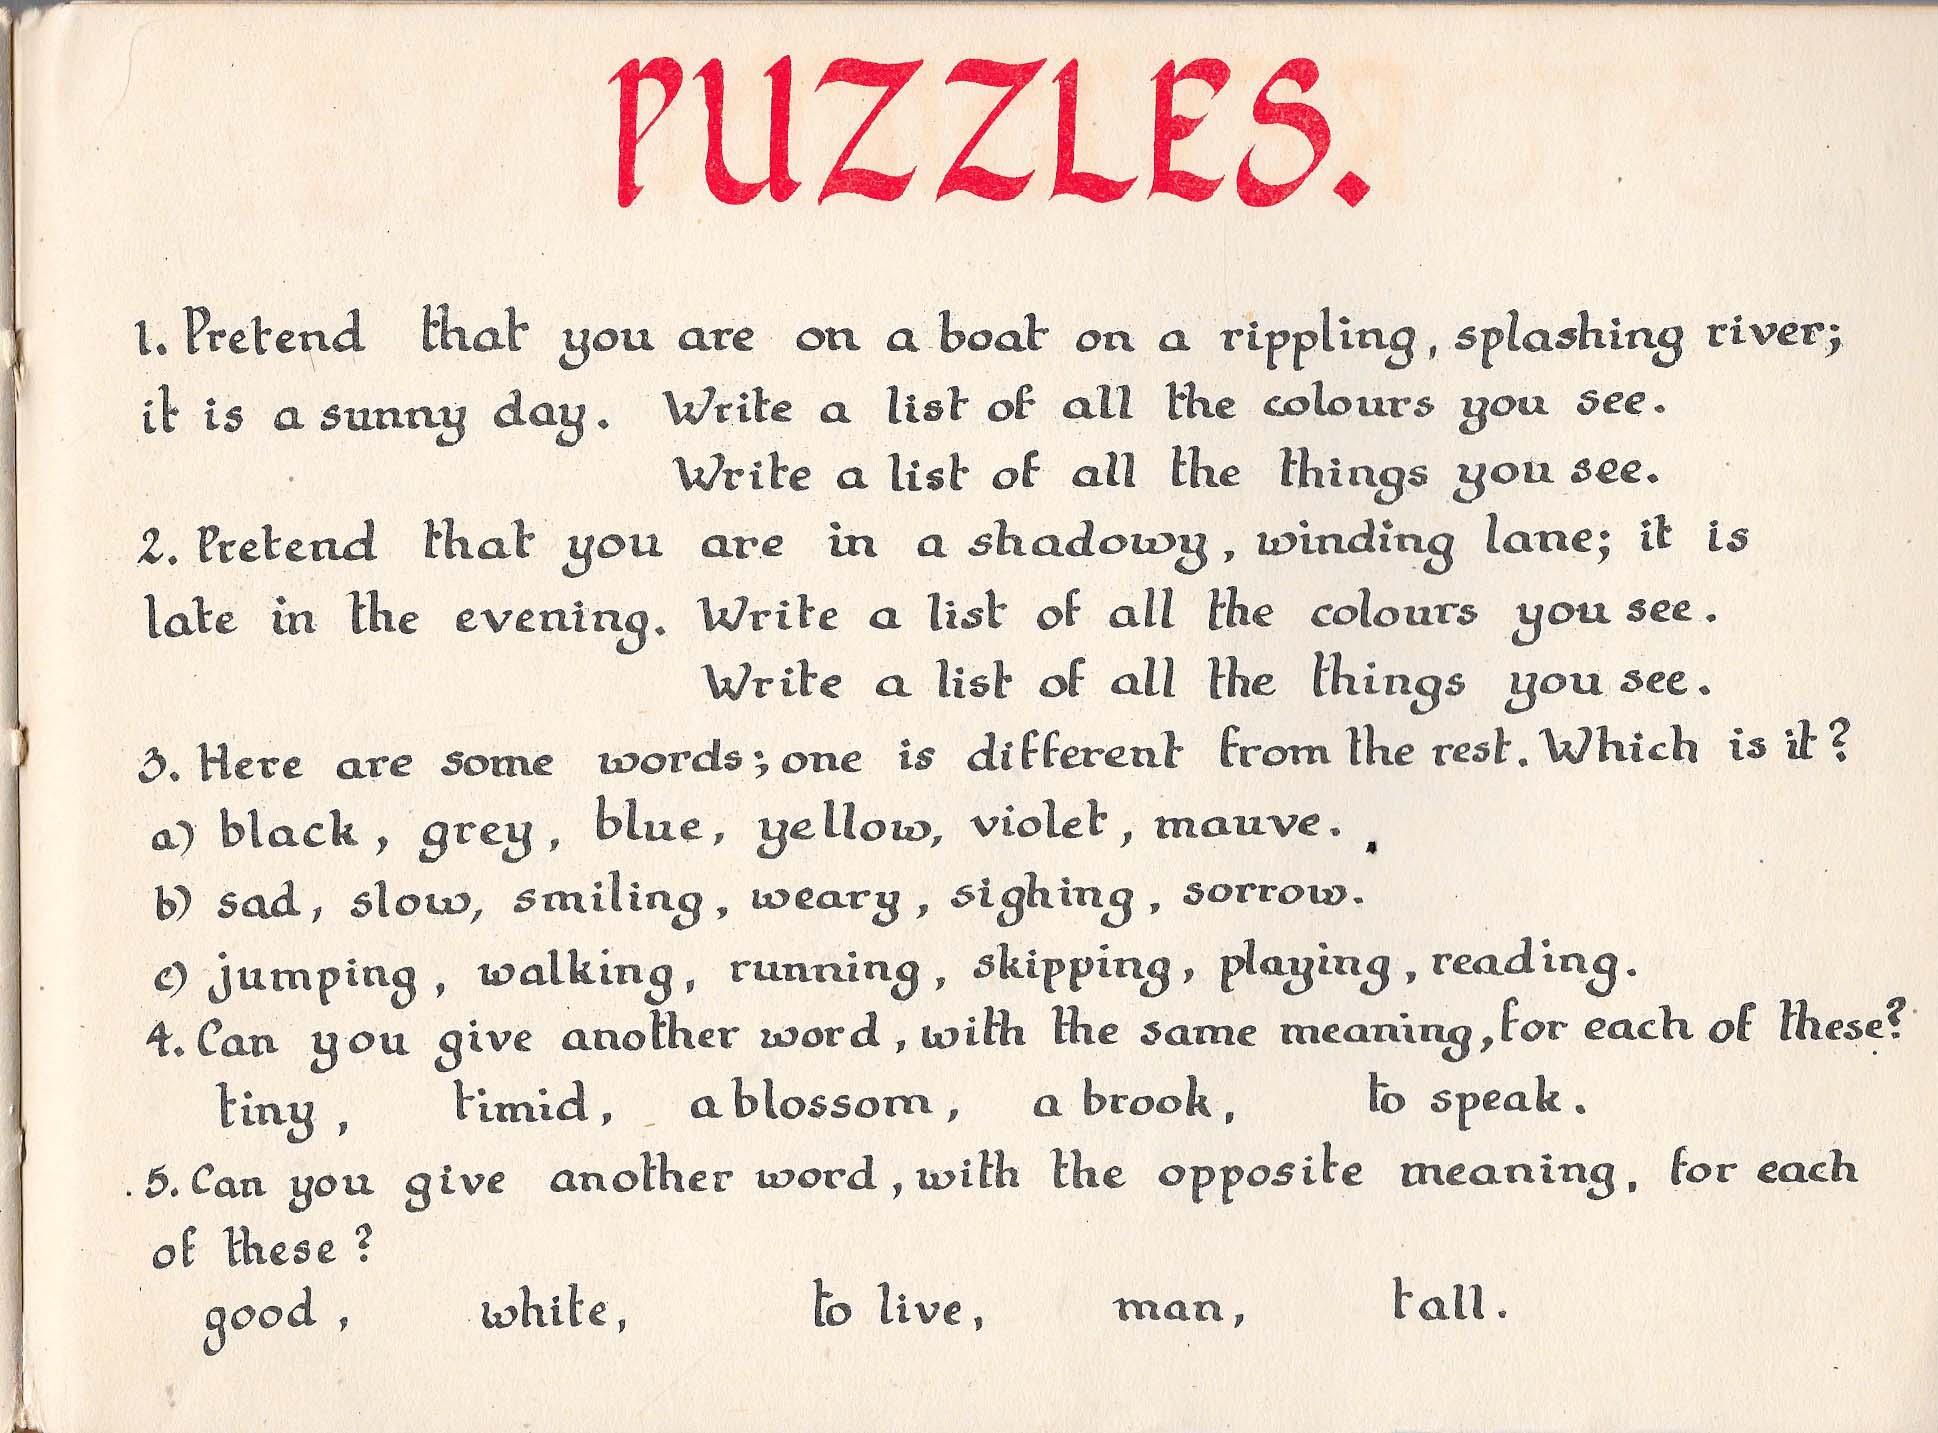 PUZZLES.
1. Pretend that you are on a boat on a rippling, splashing river;
it is a sunny day. Write a list of all the colours you see.
Write a list of all the things you see.
2. Pretend that you are in a shadowy, winding lane; it is
late in the evening. Write a list of all the colours you see.
Write a list of all the things you see.
3. Here are some words; one is different from the rest. Which is it?
a) black, grey, blue, yellow, violet, mauve.
b) sad, slow, smiling, weary, sighing, sorrow.
c) jumping, walking, running, skipping, playing, reading.
4. Can you give another word, with the same meaning, for each of these?
tiny, timid, a blossom, a brook, to speak.
5. Can you give another word, with the opposite meaning, for each
of these?
good, white, to live, man, tall.